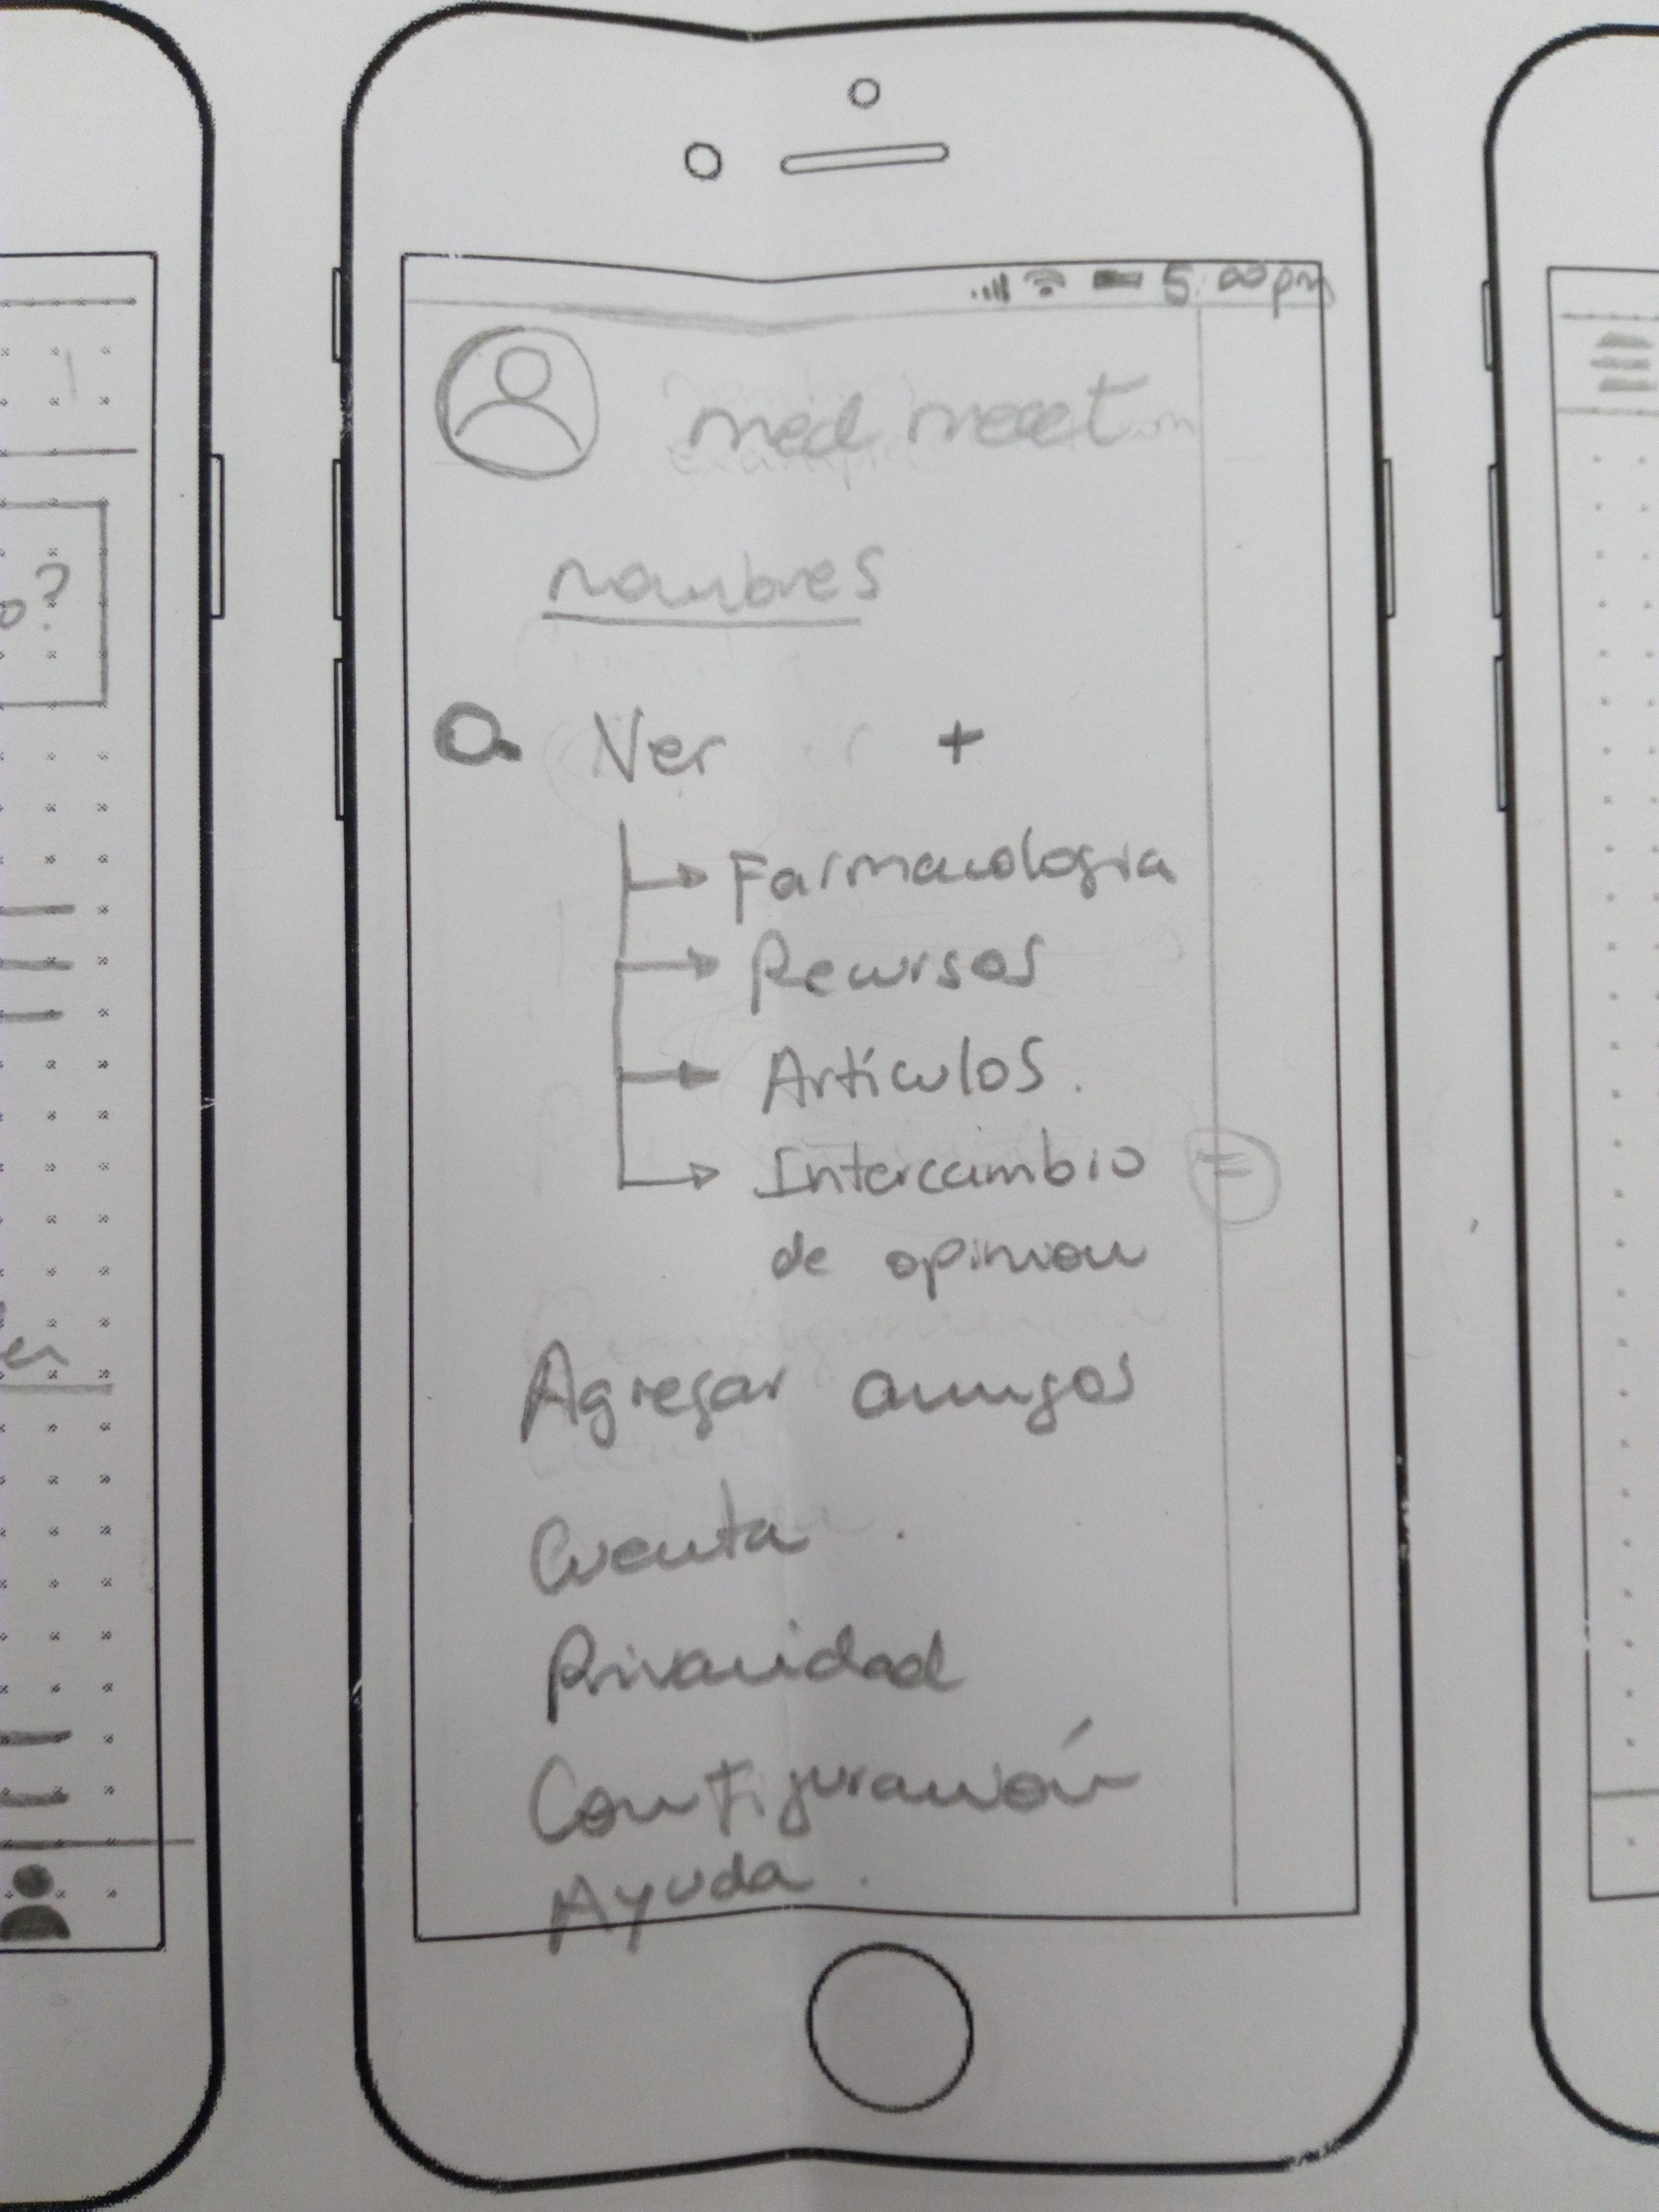 5:00pm
med meet
nombres
Ver +
Farmacologia
Recursos
Artículos.
Intercambio
de opinion
Agregar amigos
Cuenta.
Privacidad
Configuración
Ayuda.
o?
er